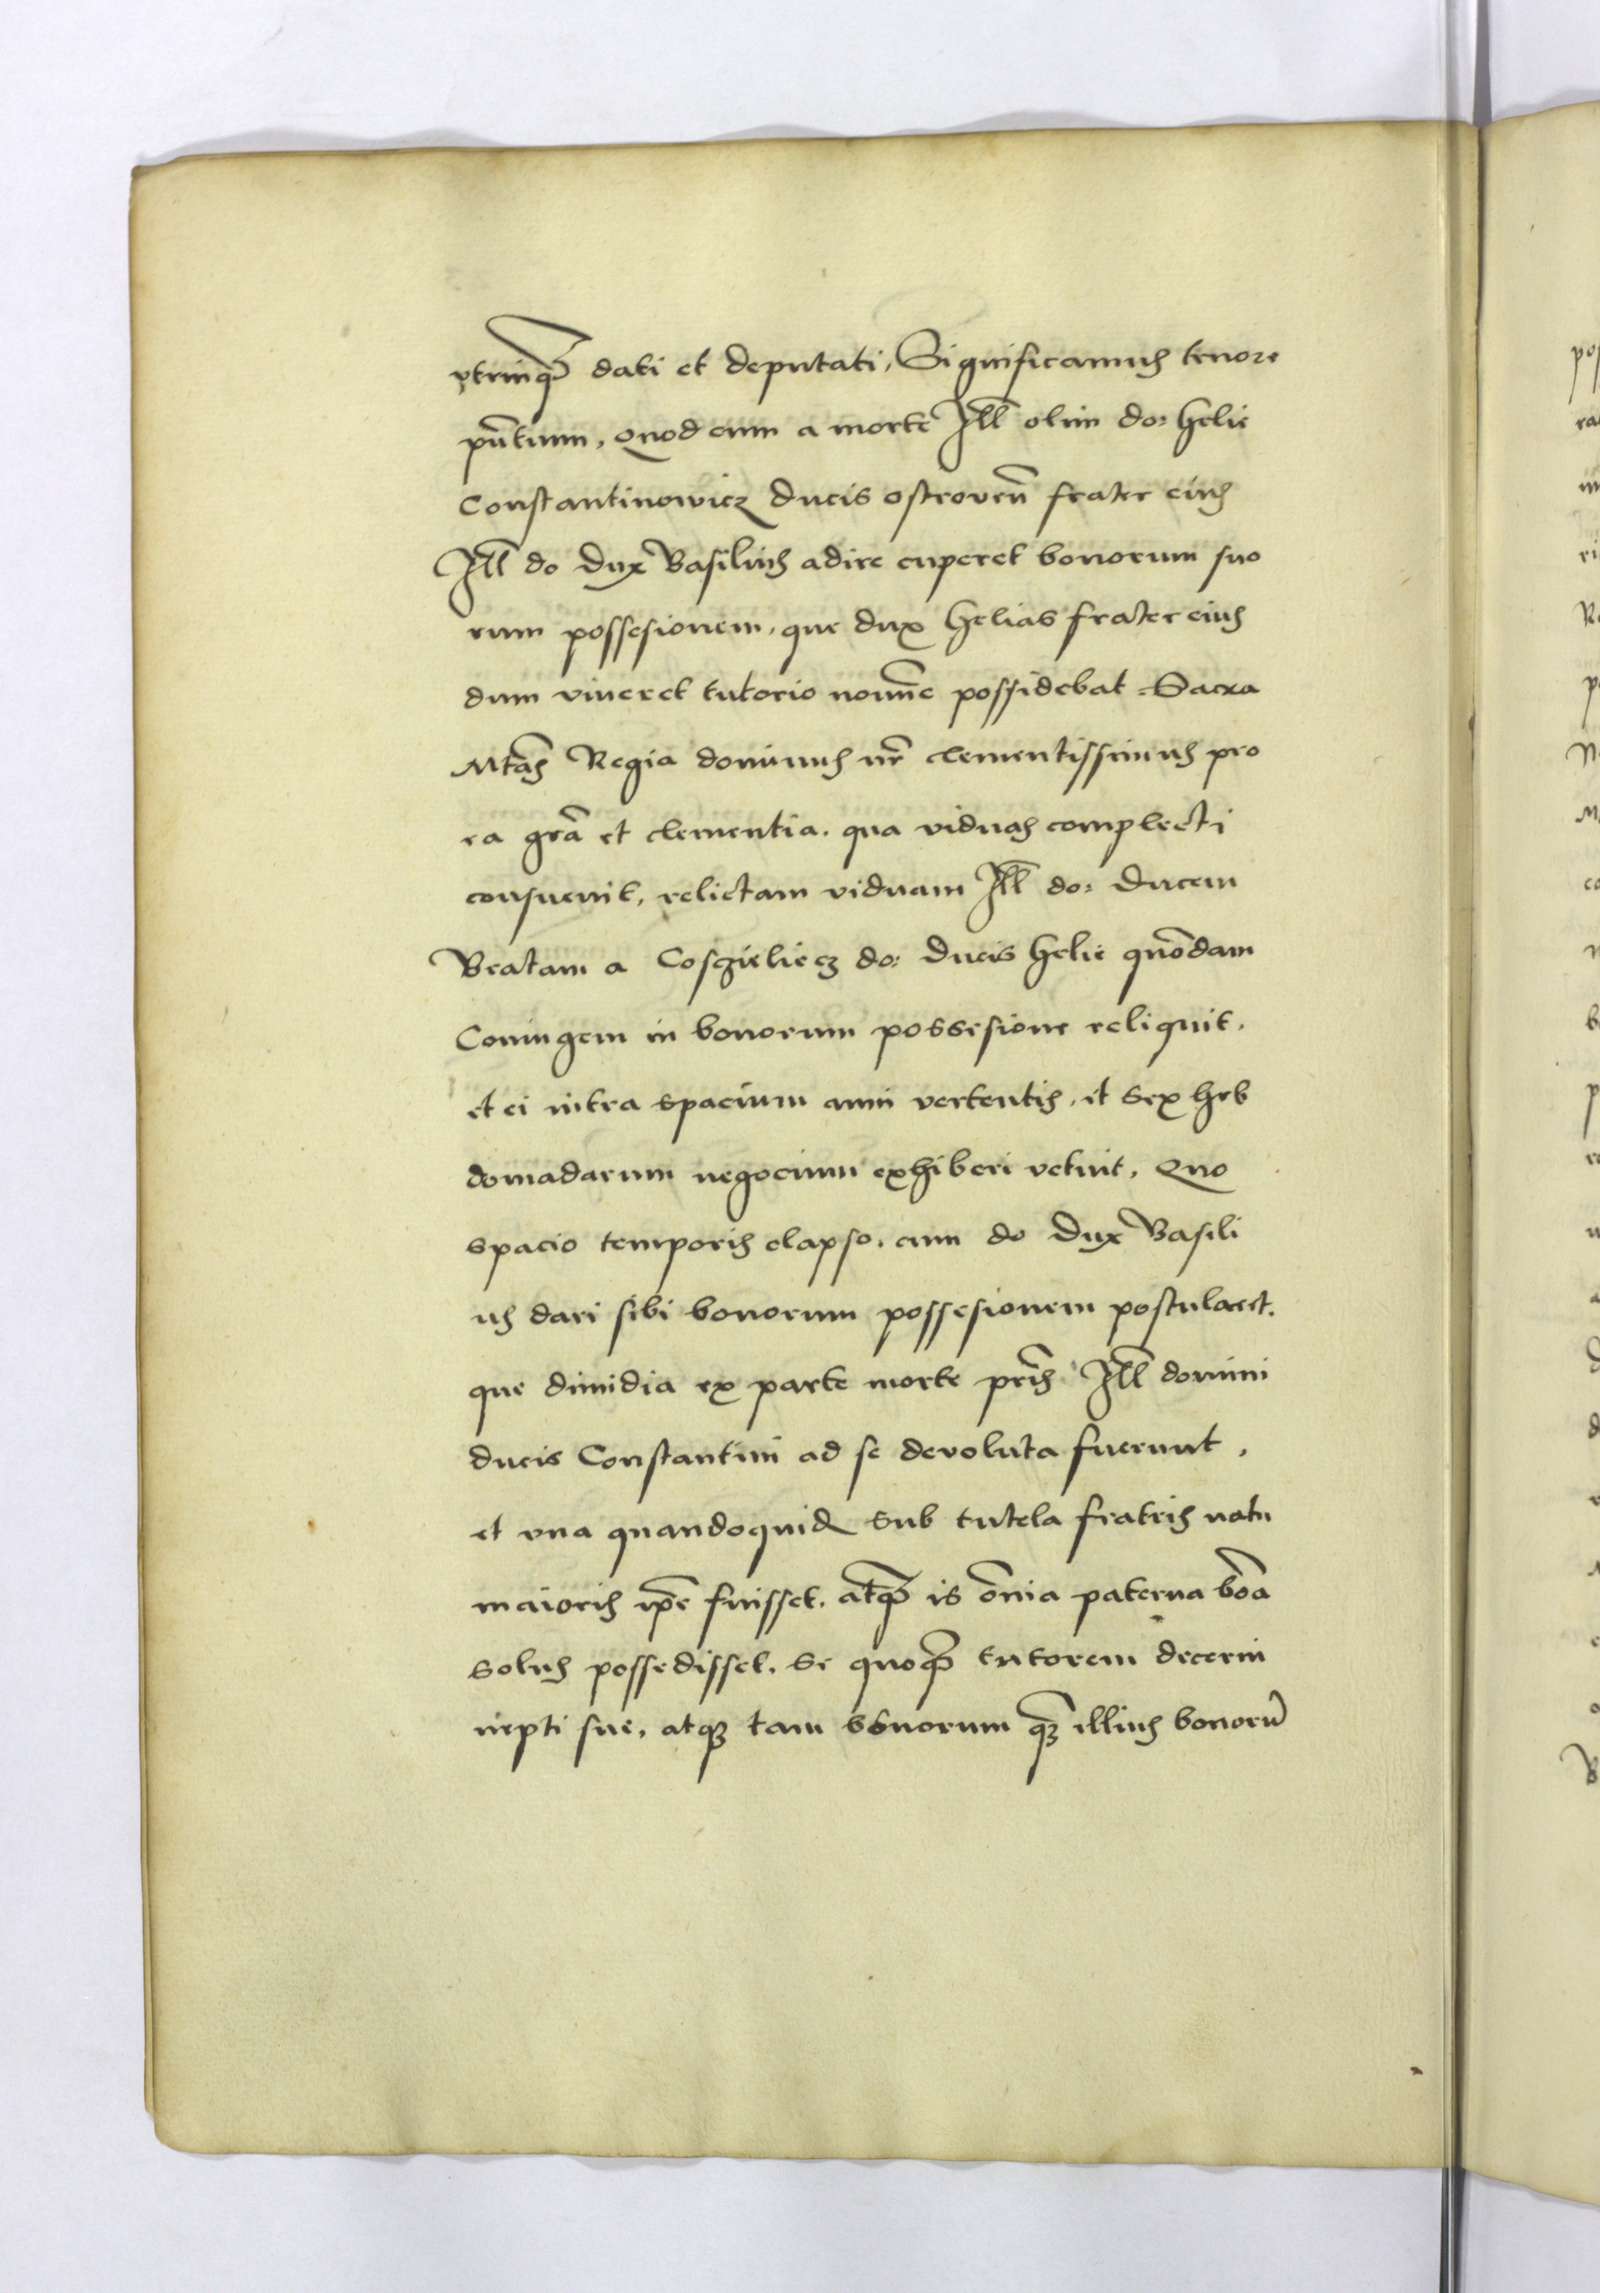 vtrinq̃ dati et deputati, Significamus tenore
pñtium, quod cum a morte Ill̃ olim do: Helie
Constantinowicz ducis ostrovieñ frater eius
Ill̃ do dux Basilius adire cuperet bonorum suo
rum possesionem, que dux Helias frater eius
dum viueret tutorio nomĩe possidebat Sacra
Mtãs Regia dominus nr̃ clementissimus pro
ea grã et clementia, qua viduas complecti
consueuit, relictam viduam Ill̃ do: ducem
Beatam a Cosczieliecz do: ducis Helie quõdam
Coniugem in bonorum possesione reliquit,
et ei intra spacium anni vertentis, et sex heb
domadarum negocium exhiberi vetuit, Quo
spacio temporis elapso, cum do dux Basili
us dari sibi bonorum possesionem postularet,
que dimidia ex parte morte pr̃is Ill̃ domini
ducis Constantini ad se devoluta fuerunt,
et vna quandoquid̃ sub tutela fratris natu
maioris ip̃e fuisset, atq̃ is õnia paterna bõa
solus possedisset, se quoq̃ tutorem decerni
nepti sue, atq3 tam suorum q̃3 illius bonorũ